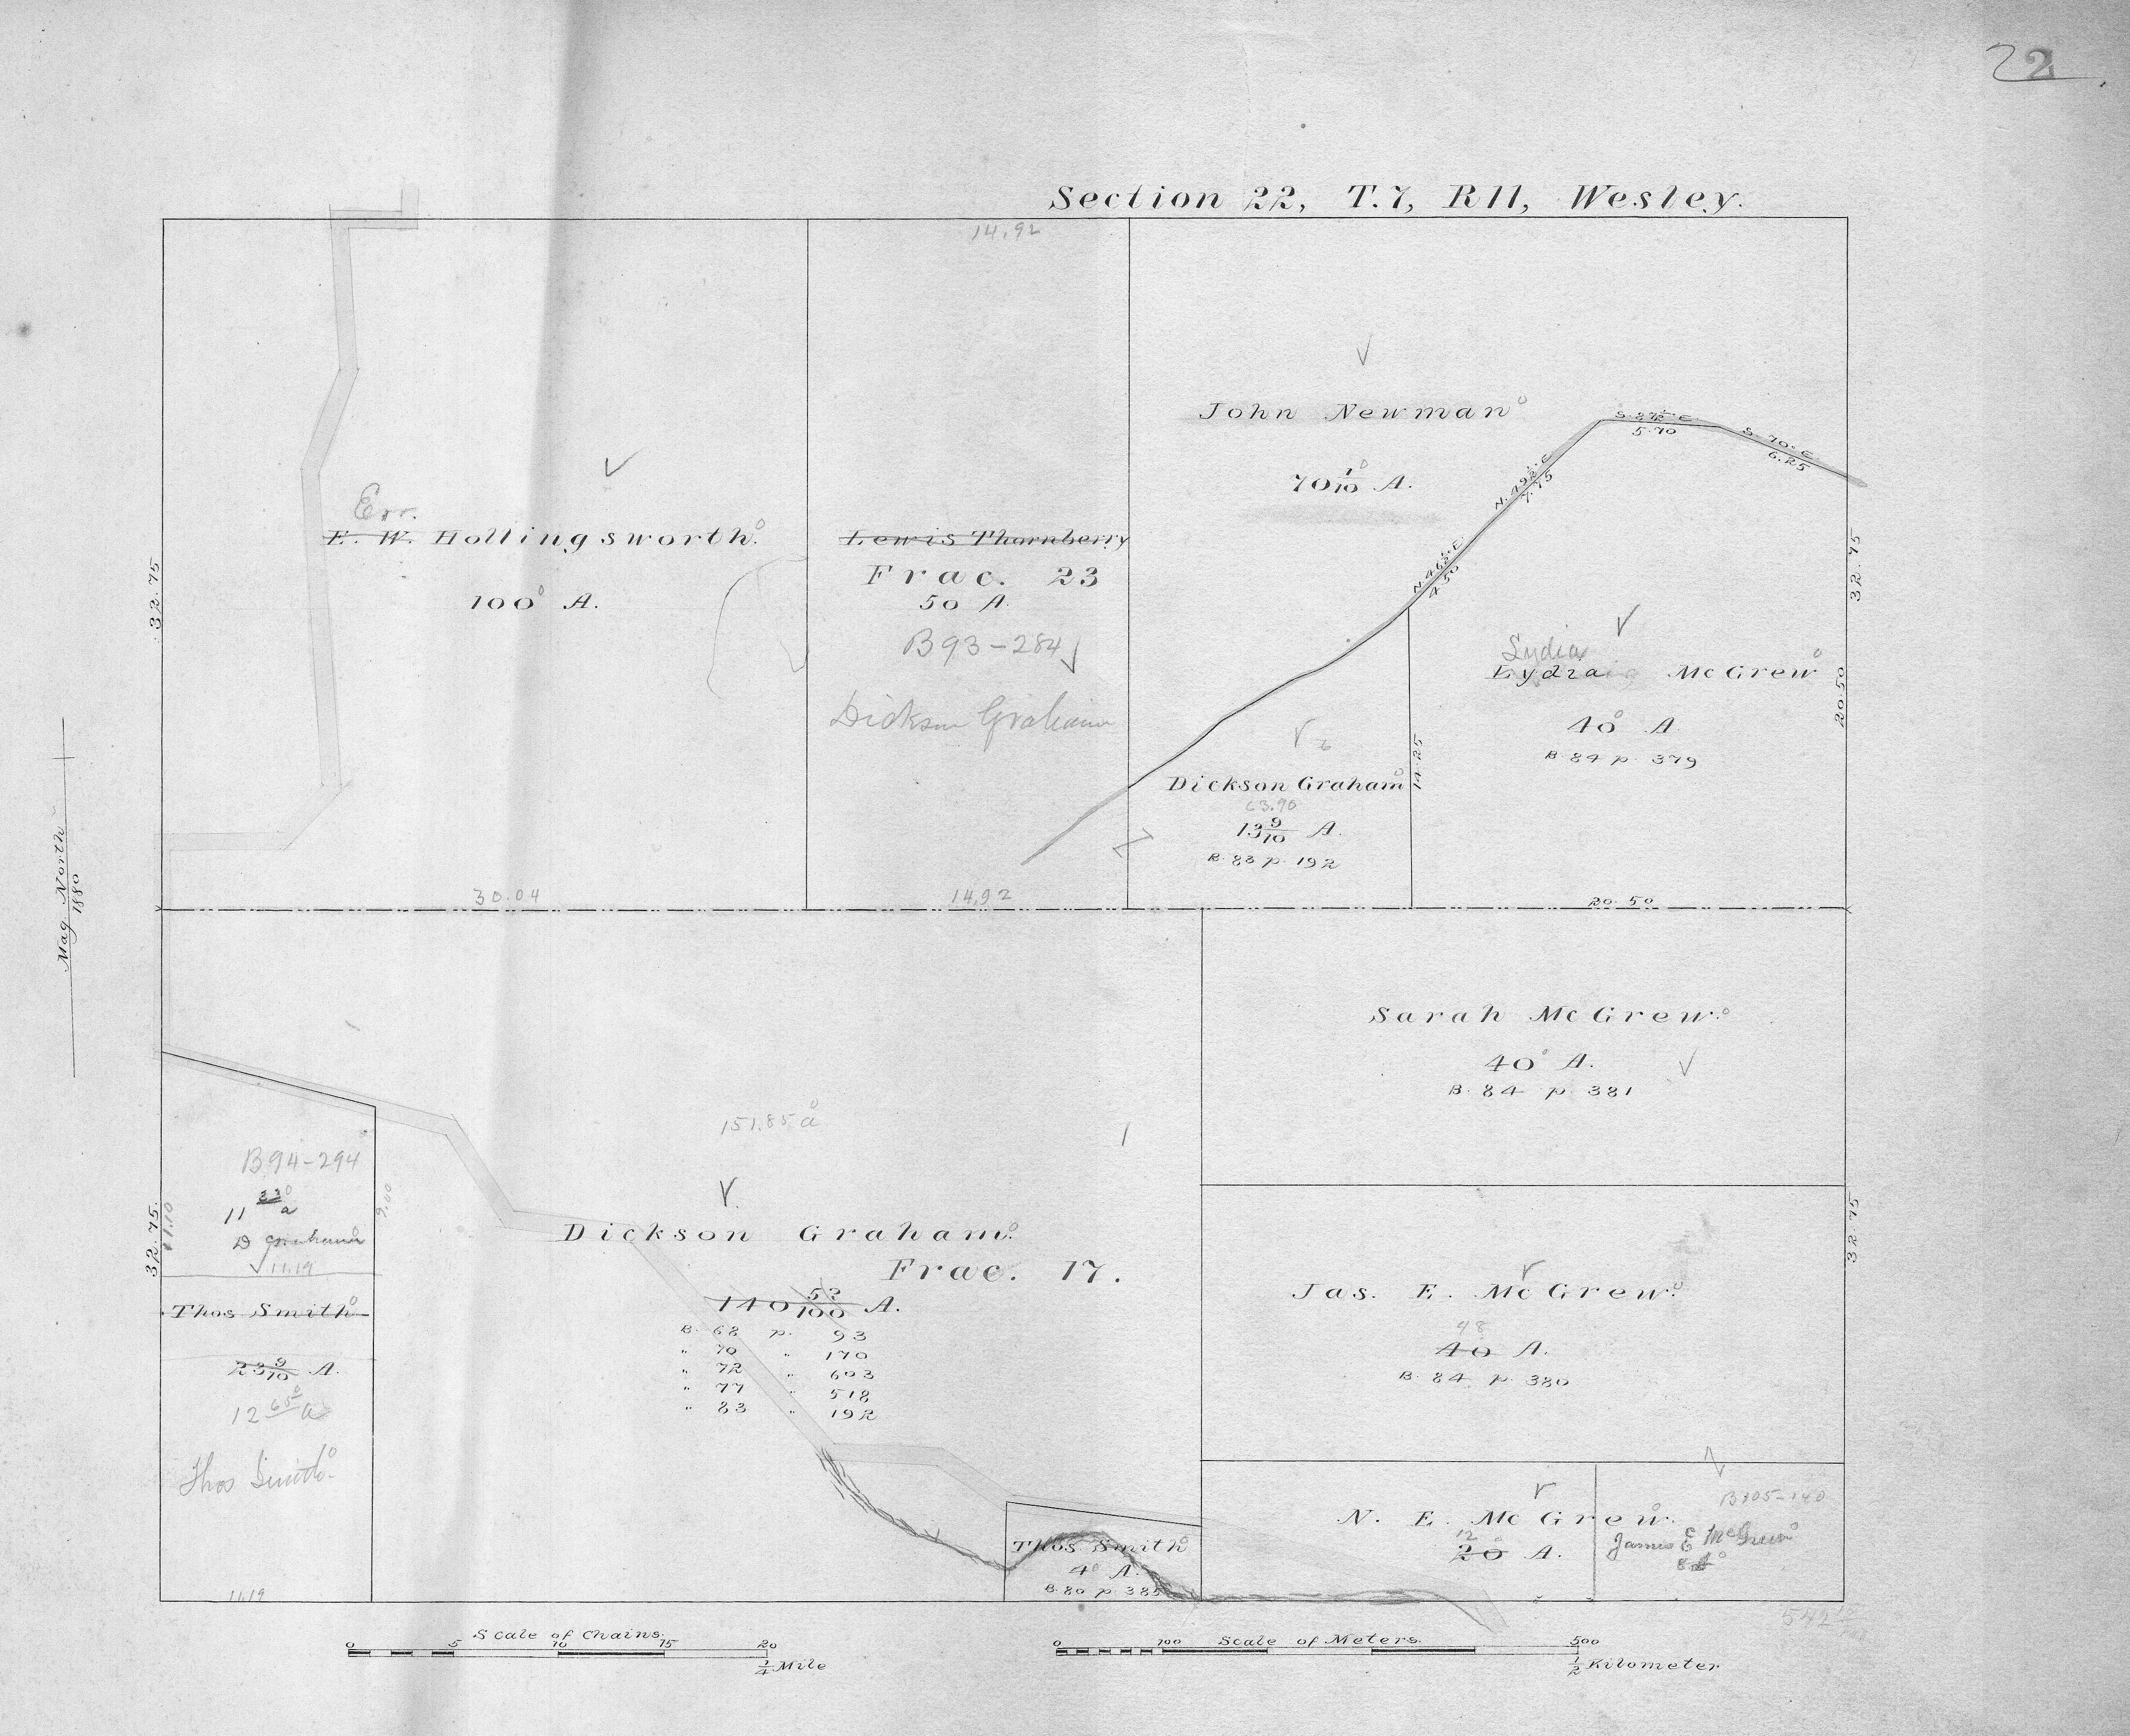 22
Section 22, T.7, R11, Wesley.
14.92
John Newman
70 1/10 A.
S. 87½° E
5.70
S. 70° E
6.25
N. 49½° E
7.75
N. 46½° E
4.50
Err.
E. W. Hollingsworth.
100 A.
32.75
30.04
Lewis Thornberry
Frac. 23
50 A.
B93-284
Dickson Graham
14.92
Dickson Graham
13 9/10 A.
B. 83 p. 192
14.25
Lydia
Eydza McGrew
40 A.
B. 84 p. 379
32.75
20.50
20.50
Mag North
1880
Sarah McGrew.
40 A.
B. 84 p. 381
151.85 a
Dickson Graham.
Frac. 17.
140 53/100 A.
B. 68 p. 93
" 70 " 170
" 72 " 603
" 77 " 518
" 83 " 192
B94-294
11 33 a
D Graham
11.19
9.00
32.75.
Thos Smith
23 9/10 A.
12 65 a
Thos Smith
11.19
Jas. E. McGrew.
48
40 A.
B. 84 p. 380
32.75
N. E. McGrew.
12
20 A.
B105-140
James E McGrew
8 a
Thos Smith
4 A.
B. 80 p. 385
542
Scale of Chains.
0 5 10 15 20
¼ Mile
Scale of Meters.
0 100 500
½ Kilometer